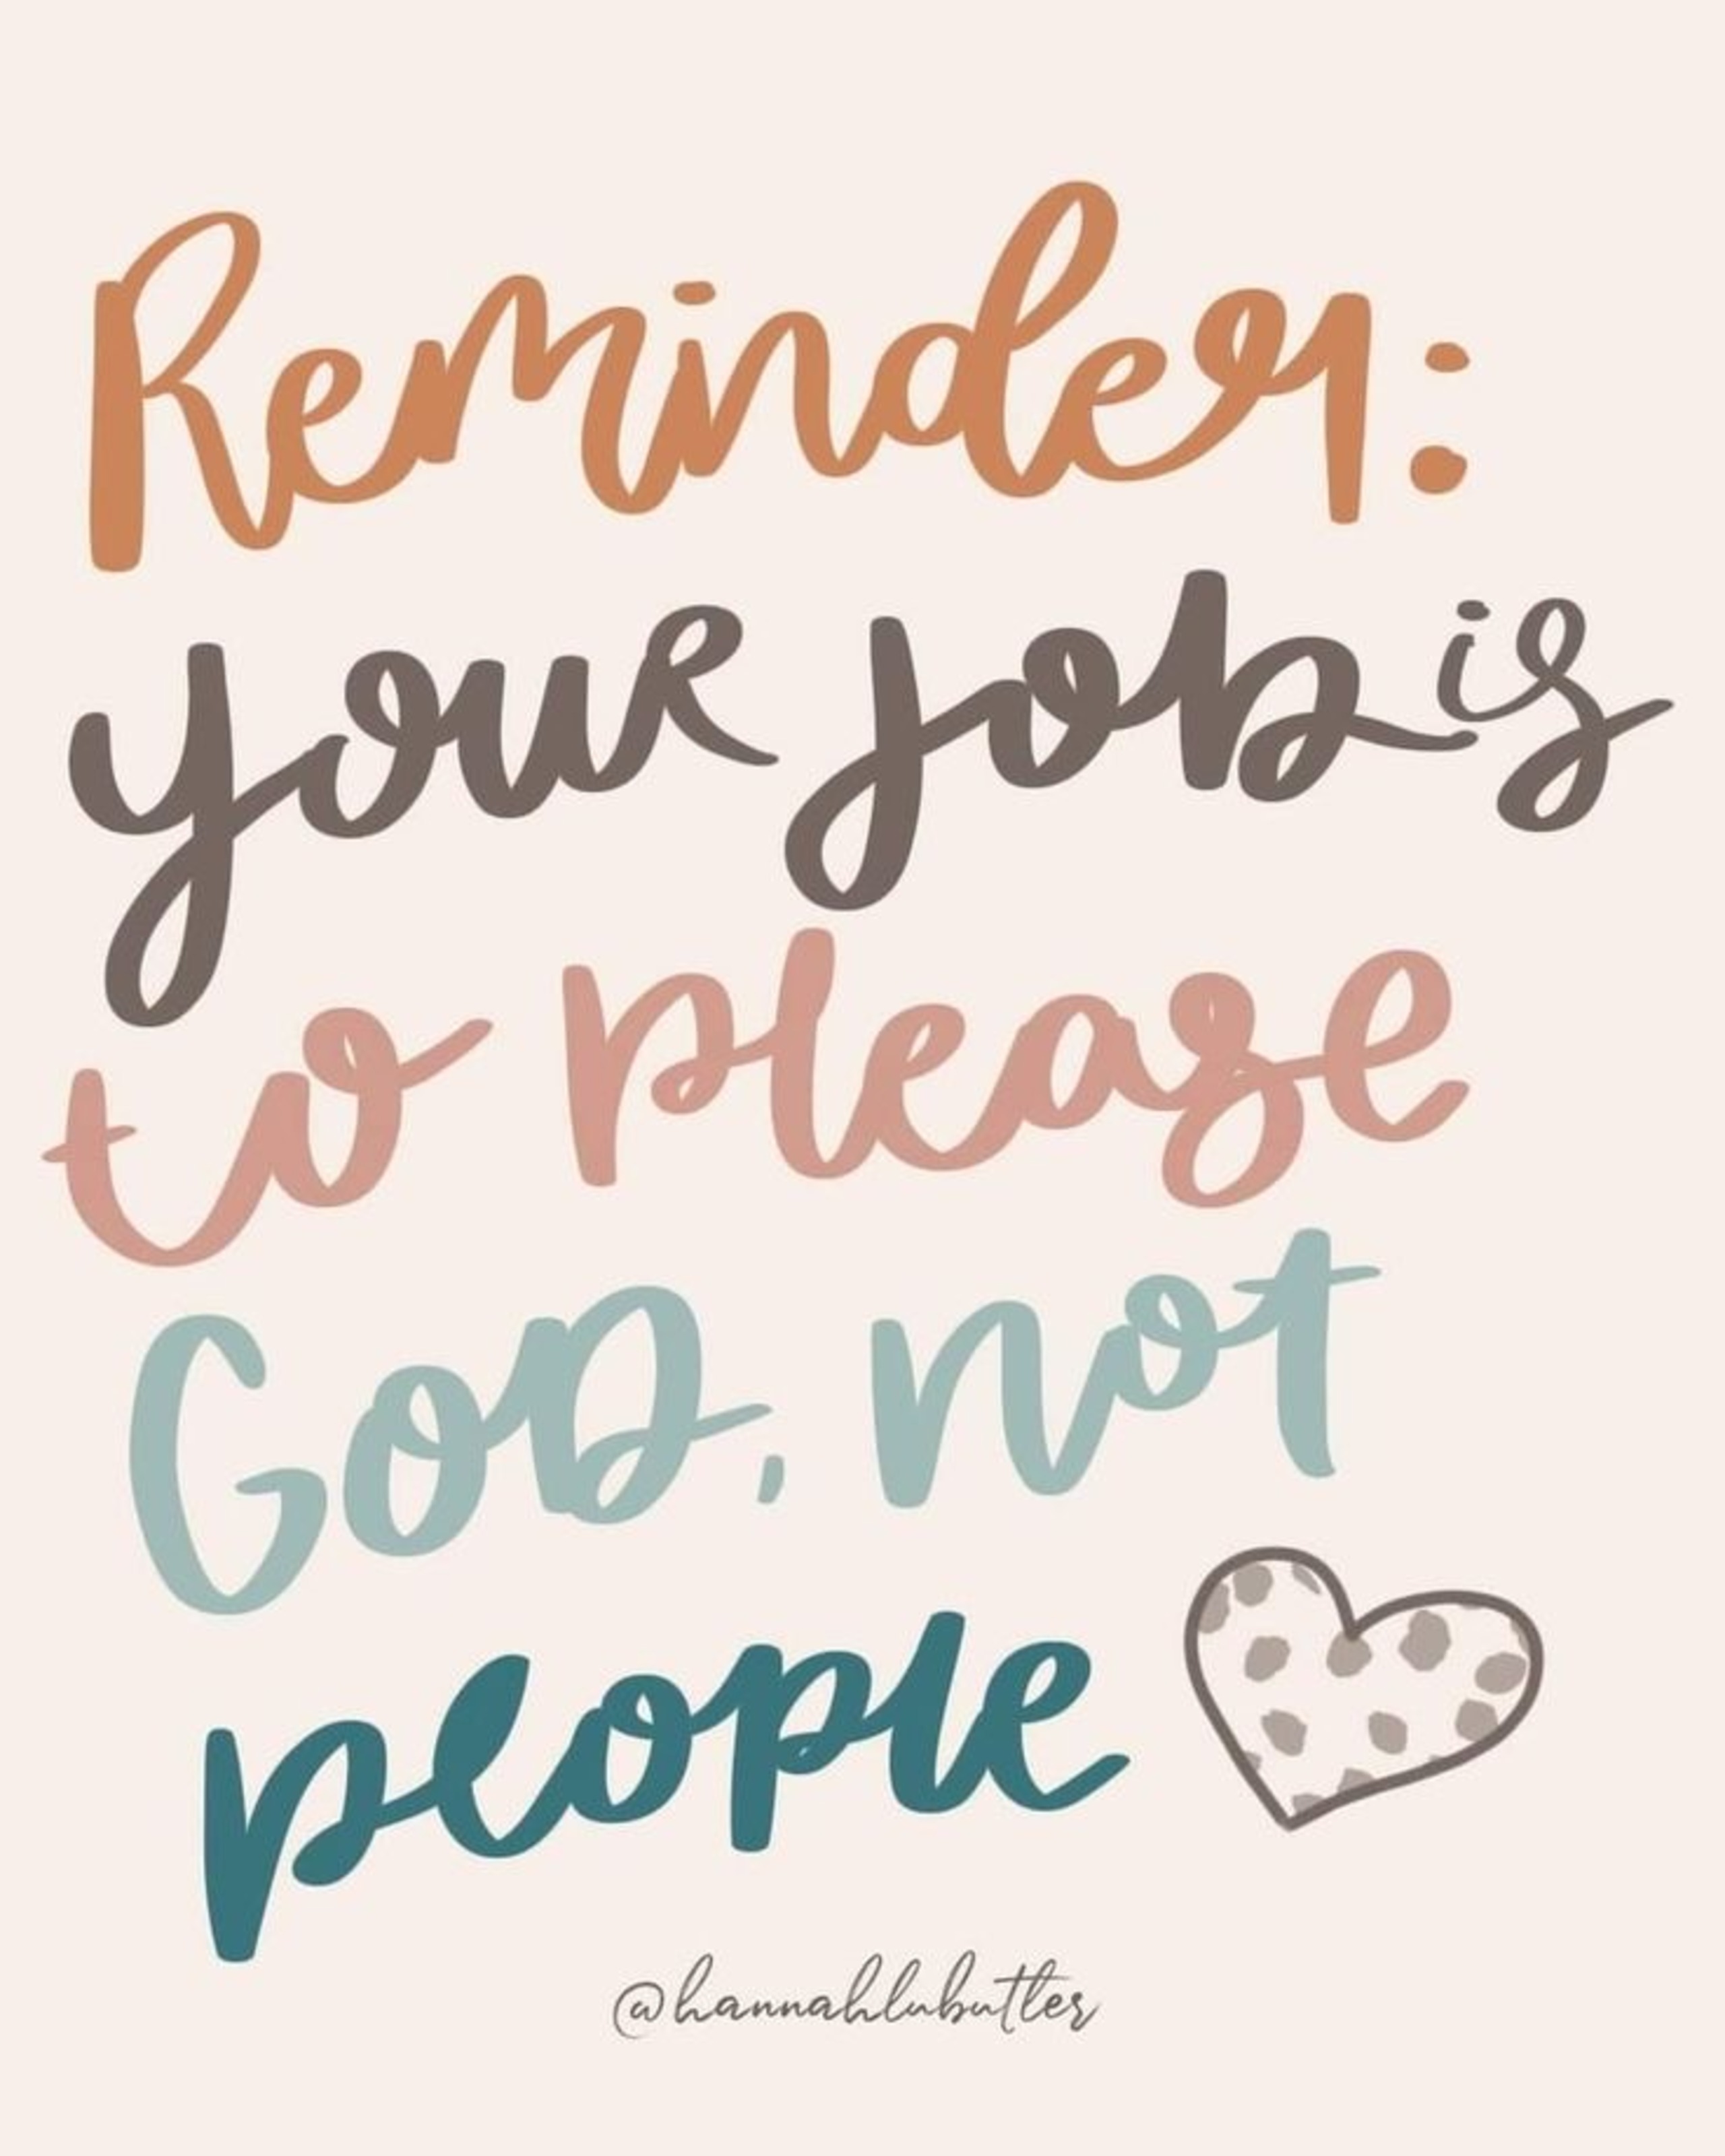 Reminder:
your job is
to please
God, not
people
@hannahlubutler